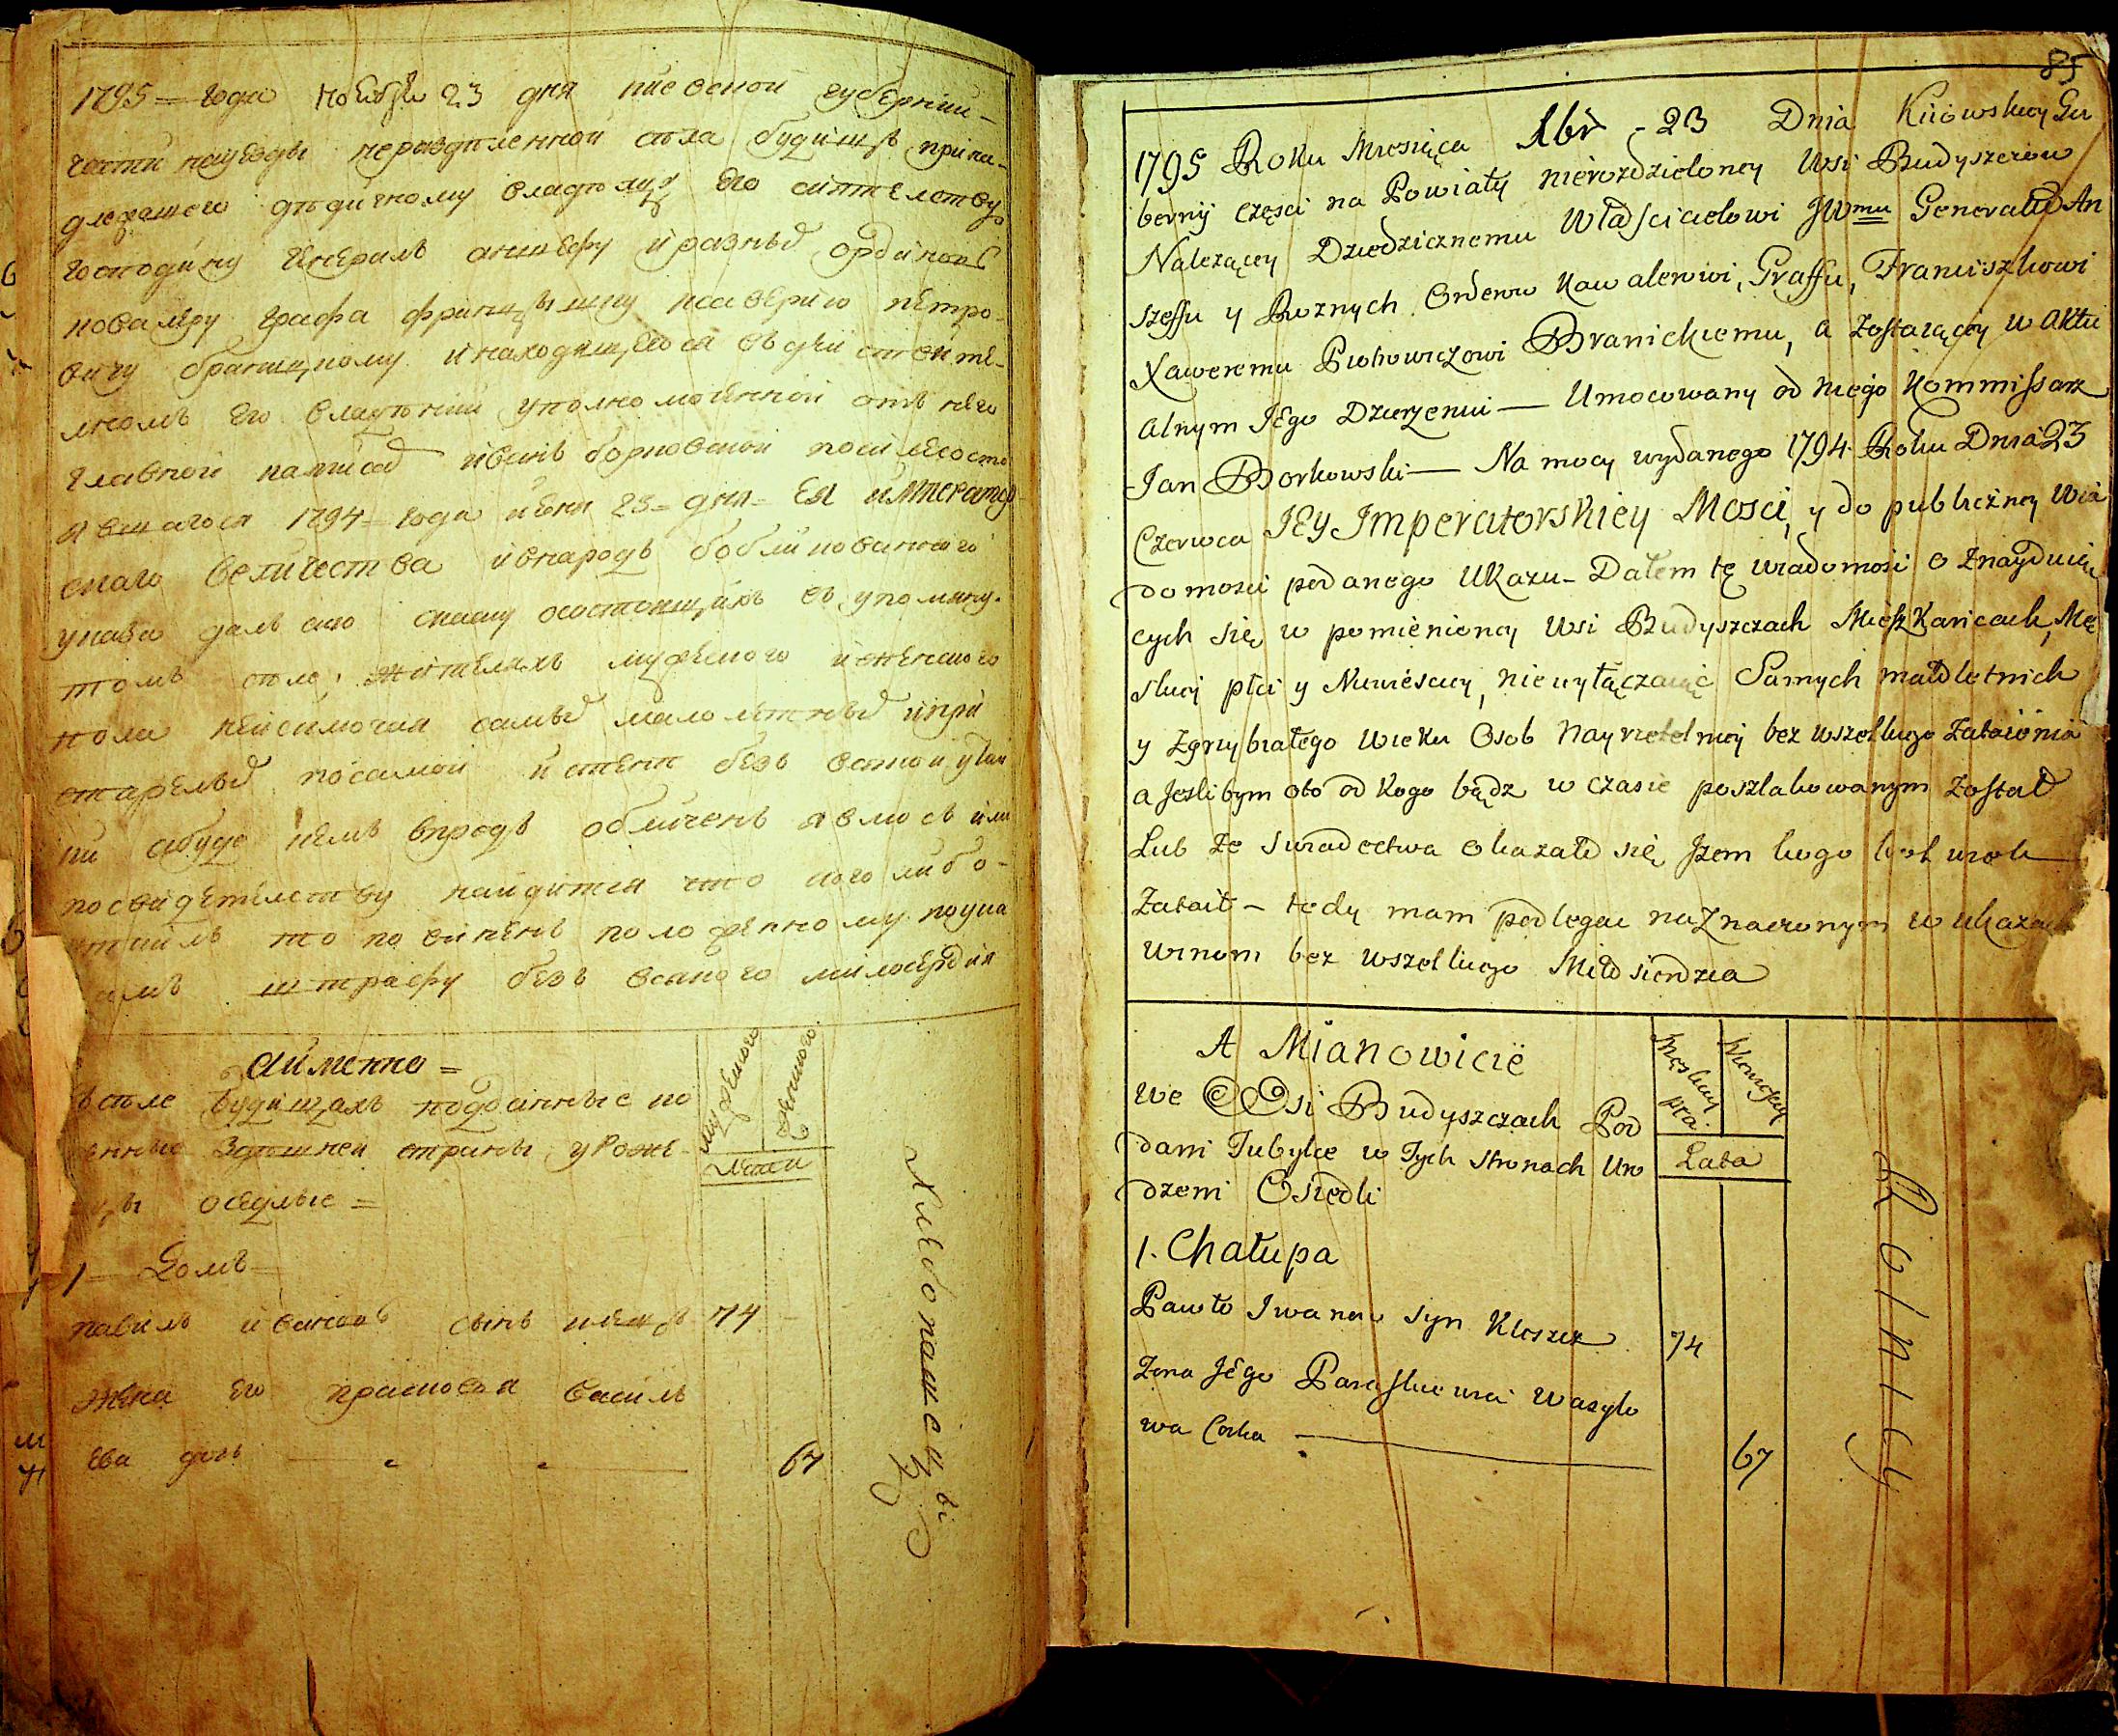 1795 = года Ноября 23 дня киевской губернии
части науезды неразделенной села будищъ прина-
длежащего дедичному владельцу его сиятельству
господину Генералъ аншефу и разныхъ орденовъ
ковалеру графа францышку ксаверию петро-
вичу браницкому и находящегося въ дей стви те-
лномъ его владении уполномоченной отъ него
главной камисаръ иванъ борковской по силе состо
явшагося 1794 = года июня 23 = дня = Ея император
скаго величества и внародъ бобликованного
указа далъ сию скаску осостоящихъ въ упомяну-
томъ селе, жителяхъ мужеского и женского
пола неисключая самыхъ малолетныхъ и при
старелыхъ по самой истене безъ всякой утай
ки абуде кемъ впредь обличенъ явлюсь или
по свидетелству найдится что кого либо-
утаилъ то по винень положенному по ука
замъ штрафу безъ всякого милосердия
аименно =
Въ селе Будищахъ подданные ко
ренные здешней страны уроже-
нцы оседлые =
мужеского
женского
лета
1 = Домъ =
павилъ ивановъ сынъ клещъ 74
жена его прасковья василь
ева дочь 67
Хлебопашцы
85
1795 Roku Miesiąca 9br - 23 Dnia Kiiowskiey Gu
bernij części na Powiaty nierozdzieloney Wsi Budyszczow
Należącey Dziedzicznemu Właścicielowi JWmu Generałow An
szeffu y Roznych Orderow Kawalerowi, Graffu, Franciszkowi
Xaweremu Piotrowiczowi Branickiemu, a zostaiącey w aktu
alnym Jego Dzierżeniu — Umocowany od niego Kommissarz
Jan Borkowski — Na mocy wydanego 1794. Roku Dnia 23
Czerwca JEy Imperatorskiey Mosci, y do publiczney Wia
domosci podanego Ukazu - Dałem tę wiadomość o znayduią
cych się w pomienioney Wsi Budyszczach Mieszkańcach, Mę
skiey płci y Niewieściey, niewyłączaiąc Samych małoletnich
y Zgrzybiałego wieku Osob nayrzetelniey bez wszelkiego Zataienia
a Jeslibym oto od kogo bądz w czasie poszlakowanym został
Lub ze swiadectwa okazało się Jzem kogo kol wiek
Zataił - tedy mam podlegac naznaczonym w ukazach
winom bez wszelkiego Miłosierdzia
A Mianowicie
we Wsi Budyszczach Pod
dani Tubylce w Tych stronach Uro
dzeni Osiedli
Męskiey płci
Niewiesciey
Lata
1. Chałupa
Pawło Iwanow syn Kleszcz 74
Zona Jego Paraskiewia Wasylo
wa Corka 67
Rolnicy